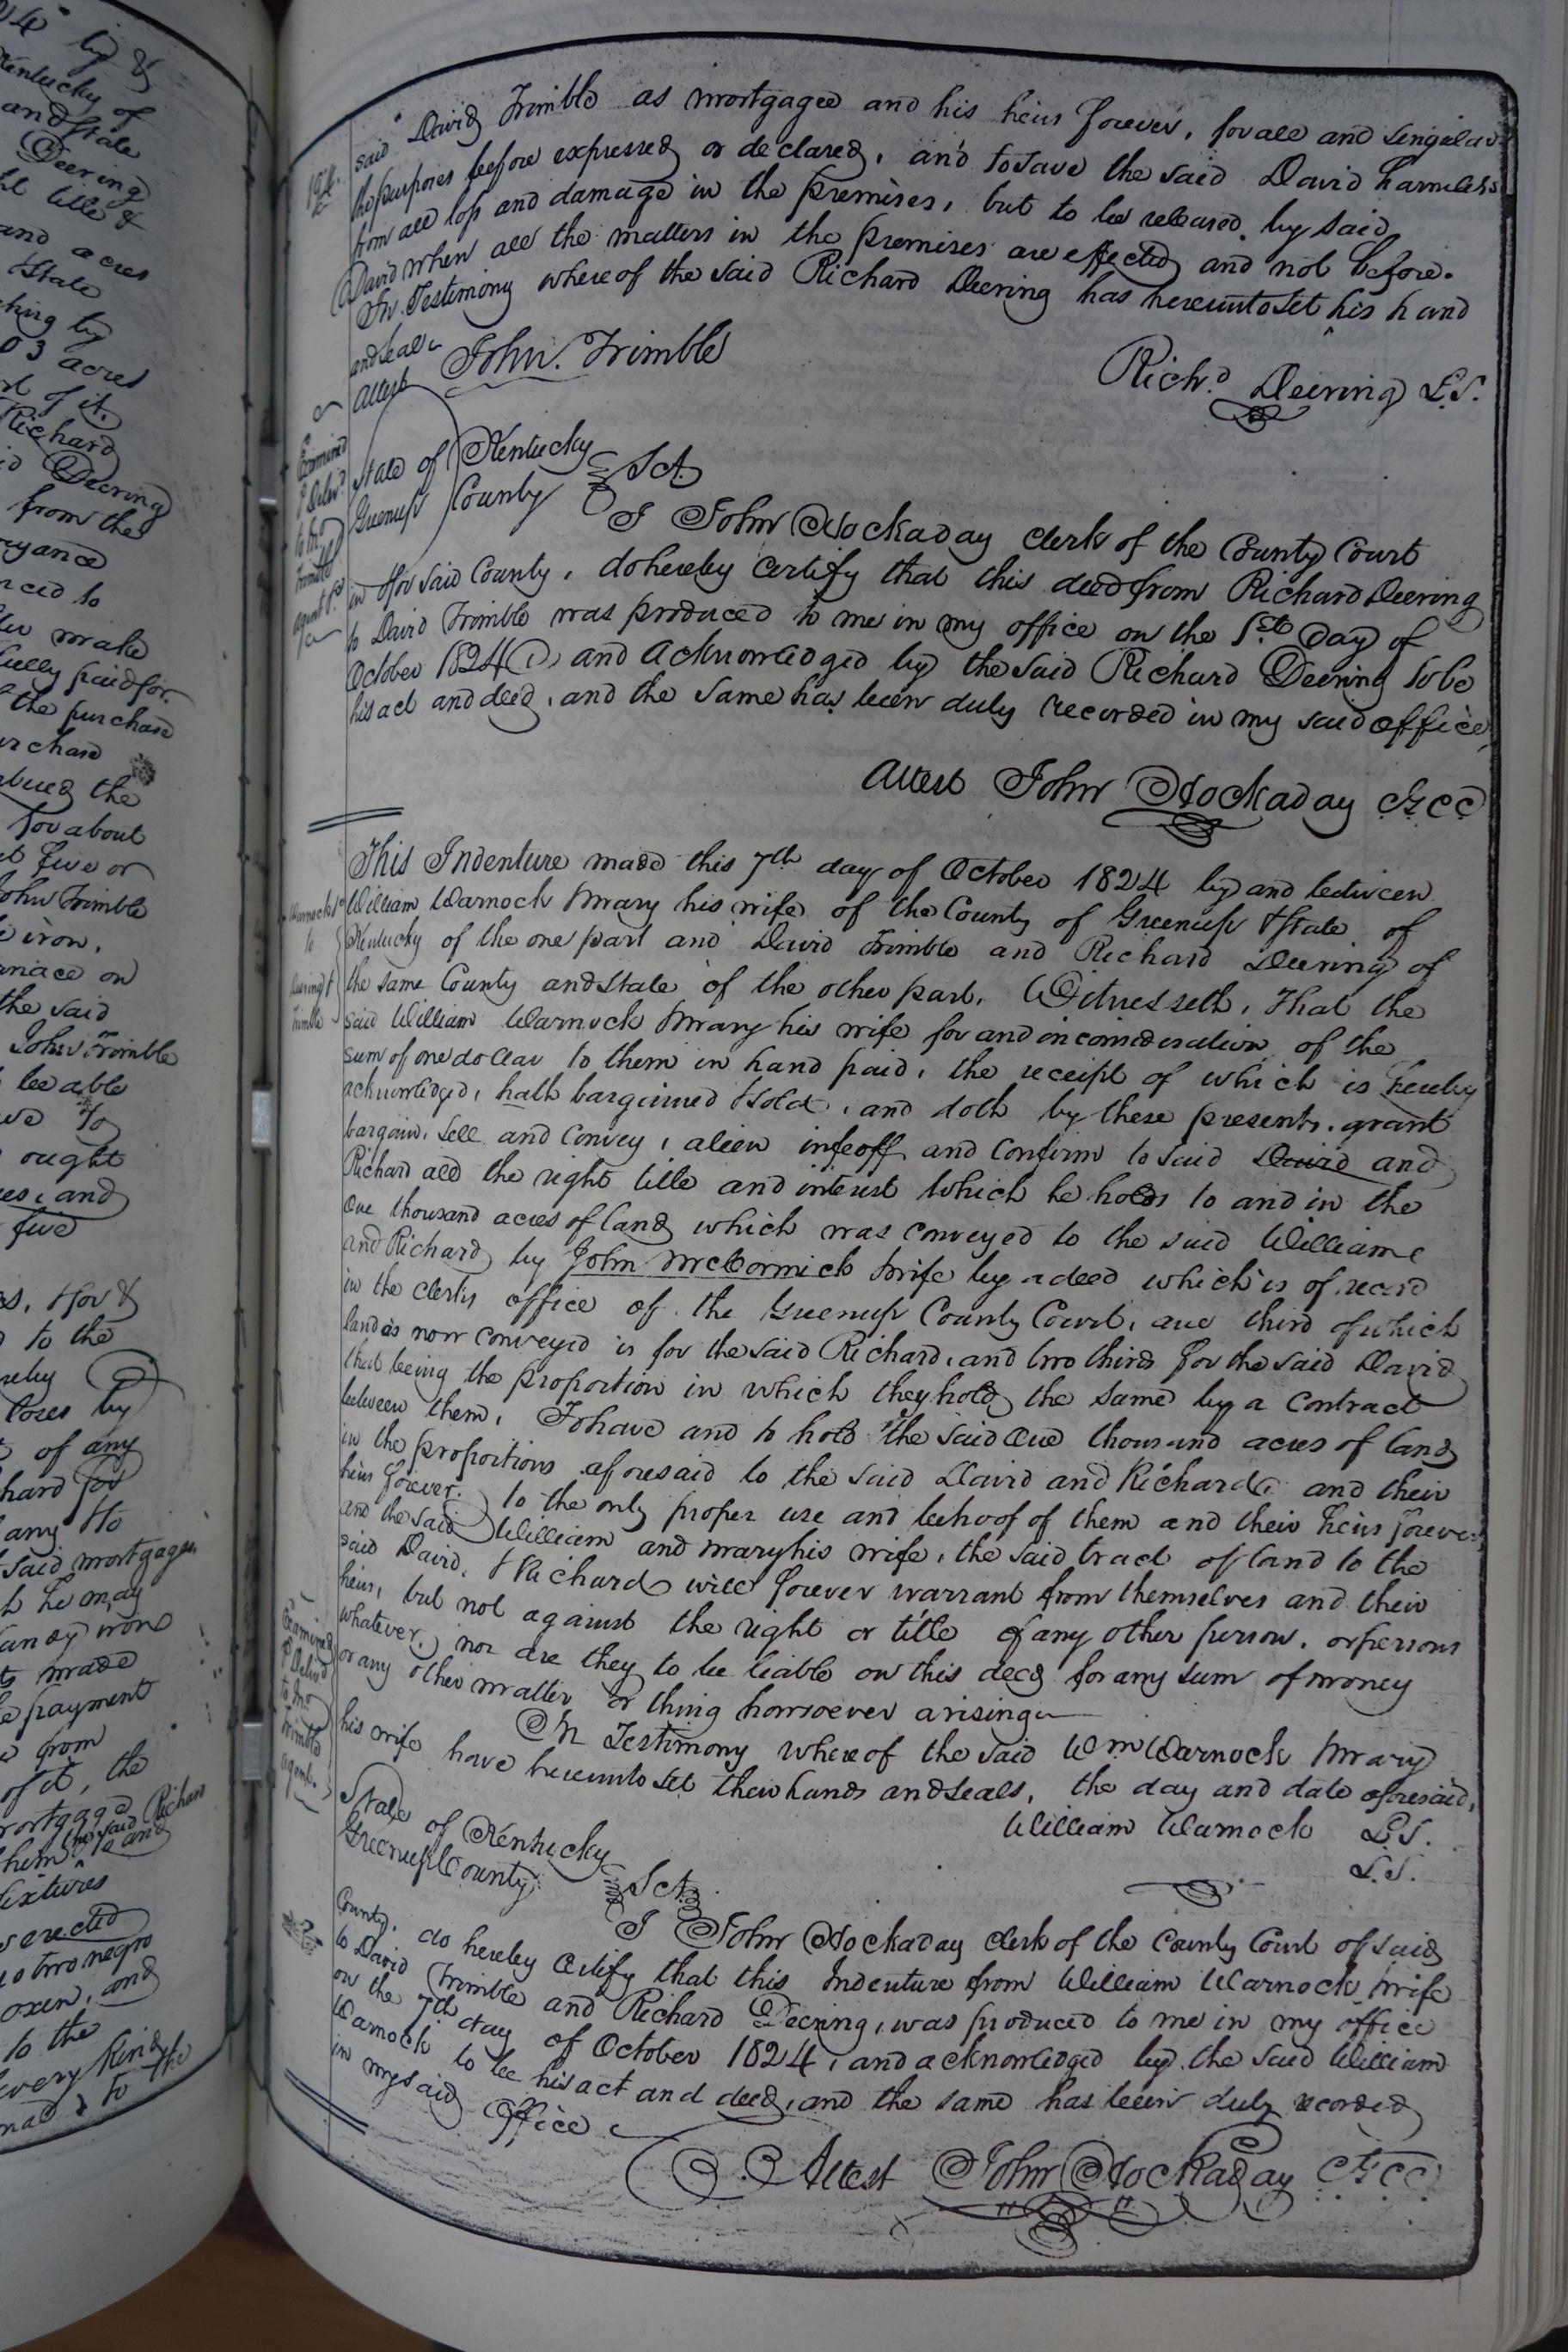 24 by &
Kentucky of
and State
Deering
title &
and acres
State
ching by
03 acres
of it.
Richard
Deering
from the
yance
nced to
make
fully paid for.
the purchase
urchase
the
for about
five or
John Trimble
iron,
rnace on
the said
John Trimble
be able
to
ought
and
five
for &
to the
reby
loses by
of any
hard for
any to
said mortgage
he may
any more
made
payment
from
of it, the
ortgage
the said Richard
him and
fixtures
erected
two negro
oxen, and
to the
every kind
to the
said David Trimble as mortgagee and his heirs forever, for all and singular
the purposes before expressed or declared, and to save the said David harmless
from all loss and damage in the premises, but to be released by said
David when all the matters in the premises are effected and not before.
In Testimony whereof the said Richard Deering has hereunto set his hand
and seal
Attest John Trimble
Richd Deering L.S.
Examined
& Delivd
to Jno
Trimble
agent &c
State of Kentucky
Greenup County Sct.
I John Hockaday clerk of the County Court
in & for said County, do hereby certify that this deed from Richard Deering
to David Trimble was produced to me in my office on the 1st day of
October 1824 and acknowledged by the said Richard Deering to be
his act and deed, and the same has been duly recorded in my said office
Attest John Hockaday CGCC
Warnocks
to
Deering &
Trimble
This Indenture made this 7th day of October 1824 by and between
William Warnock & mary his wife of the County of Greenup & State of
Kentucky of the one part and David Trimble and Richard Deering of
the same County and State of the other part, Witnesseth, That the
said William Warnock & mary his wife for and in consideration of the
sum of one dollar to them in hand paid, the receipt of which is hereby
acknowledged, hath bargained & sold, and doth by these presents, grant
bargain, sell and convey, alien infeoff and confirm to said David and
Richard all the right title and interest which he holds to and in the
One thousand acres of land which was conveyed to the said William
and Richard by John McCormick & wife by a deed which is of record
in the clerks office of the Greenup County Court, one third of which
land as now conveyed is for the said Richard, and two thirds for the said David
that being the proportion in which they hold the same by a contract
between them, To have and to hold the said One thousand acres of land
in the proportions aforesaid to the said David and Richard and their
heirs forever. to the only proper use and behoof of them and their heirs forever
and the said William and mary his wife, the said tract of land to the
said David & Richard will forever warrant from themselves and their
heirs, but not against the right or title of any other person, or persons
whatever, nor are they to be liable on this deed for any sum of money
or any other matter or thing howsoever arising
In Testimony whereof the said Wm Warnock & mary
his wife have hereunto set their hands and seals, the day and date aforesaid,
William Warnock L.S.
L.S.
Examined
& Delivd
to Jno
Trimble
agent
State of Kentucky
Greenup County Sct.
I John Hockaday clerk of the County Court of said
County, do hereby certify that this Indenture from William Warnock & wife
to David Trimble and Richard Deering, was produced to me in my office
on the 7th day of October 1824, and acknowledged by the said William
Warnock to be his act and deed, and the same has been duly recorded
in my said office
Attest John Hockaday CGCC